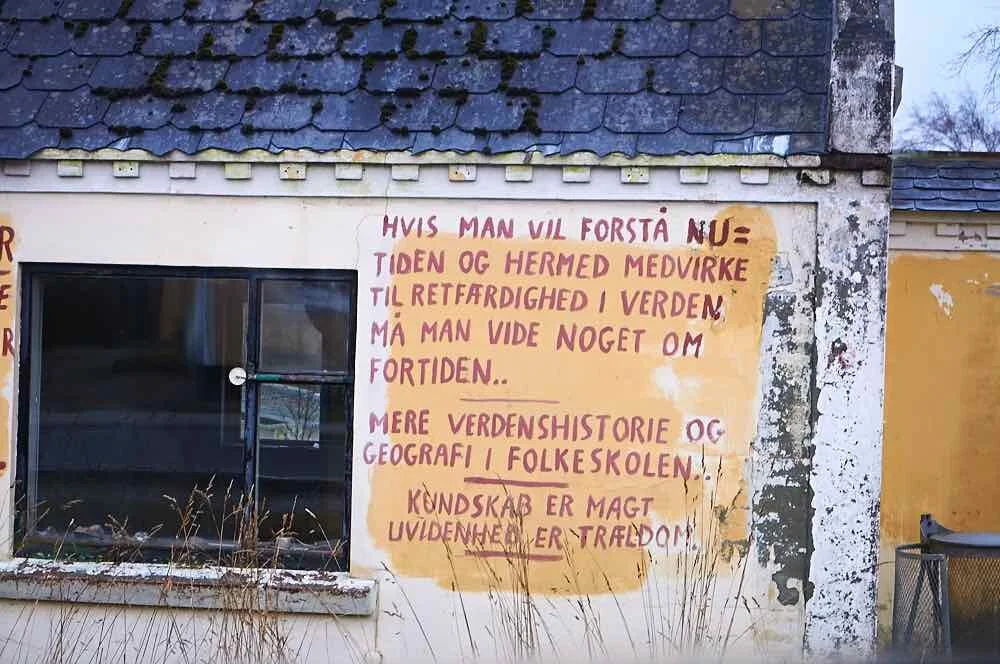 HVIS MAN VIL FORSTÅ NU=
TIDEN OG HERMED MEDVIRKE
TIL RETFÆRDIGHED I VERDEN
MÅ MAN VIDE NOGET OM
FORTIDEN..
MERE VERDENSHISTORIE OG
GEOGRAFI I FOLKESKOLEN..
KUNDSKAB ER MAGT
UVIDENHED ER TRÆLDOM.
R
E
R